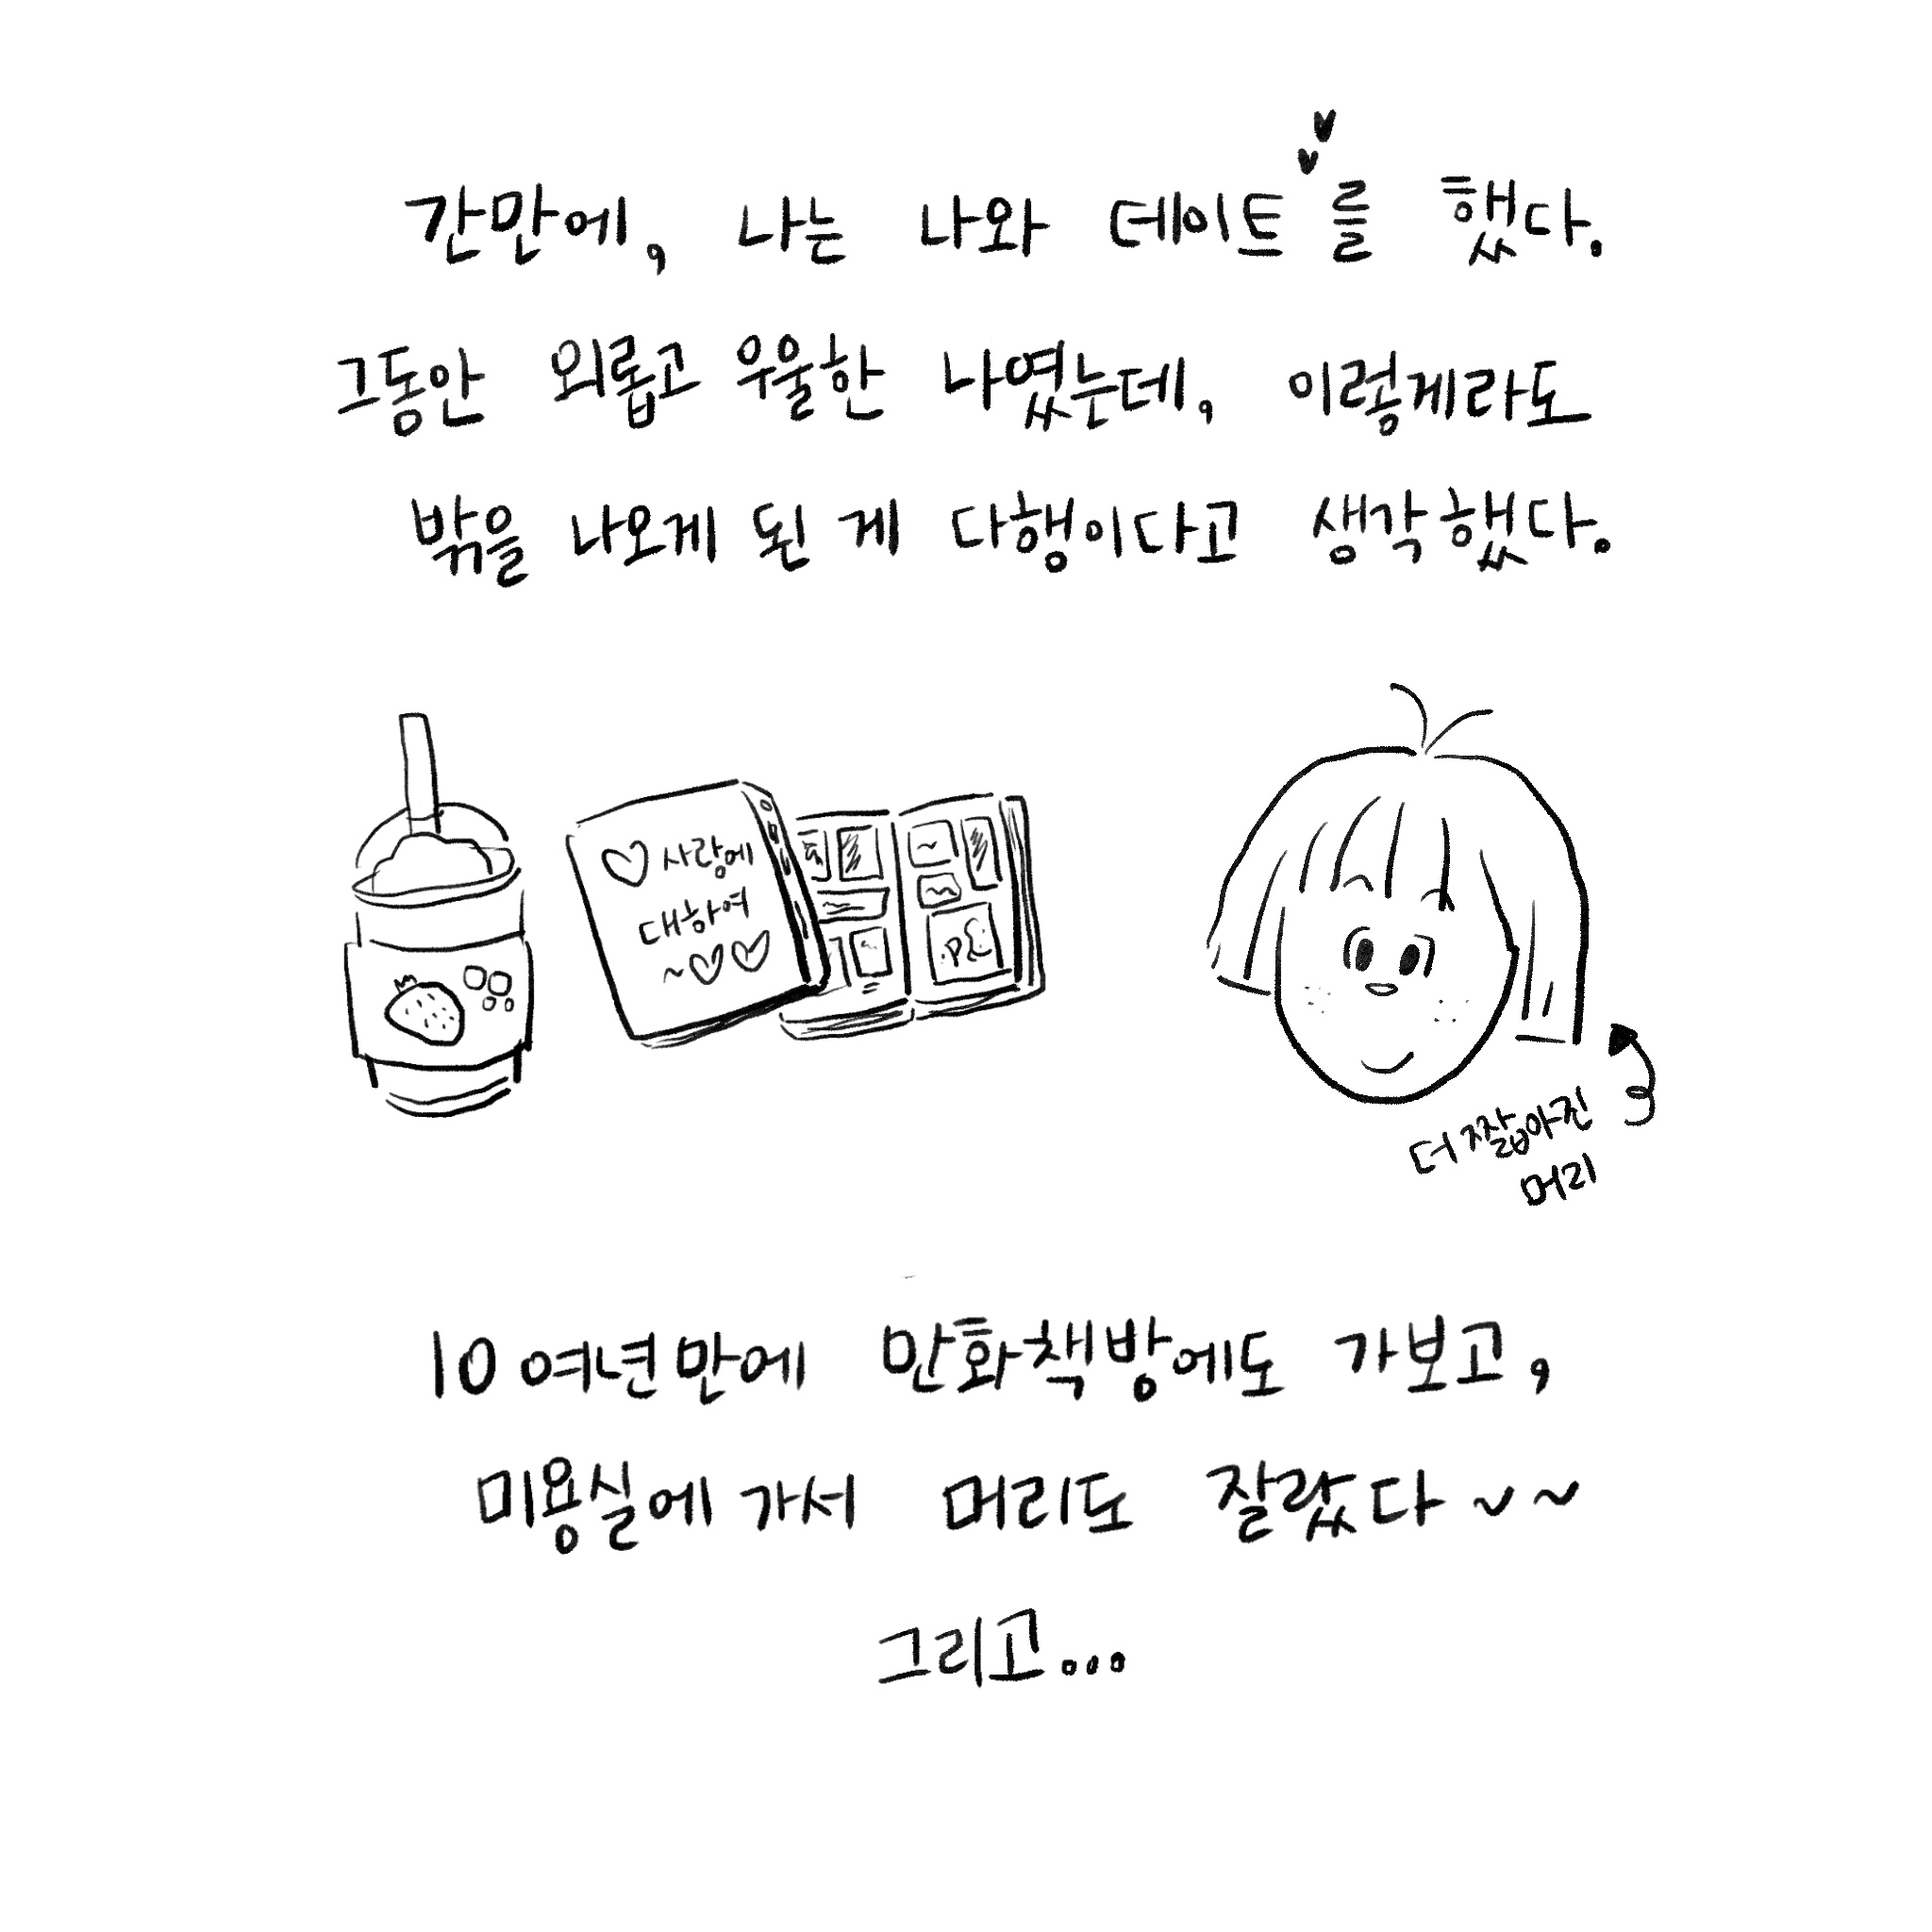 간만에, 나는 나와 데이트를 했다.
그동안 외롭고 우울한 나였는데, 이렇게라도
밖을 나오게 된 게 다행이다고 생각했다.
♡ 사랑에
대하여
~♡♡
더 짧아진
머리
10여년만에 만화책방에도 가보고,
미용실에 가서 머리도 잘랐다~~
그리고...